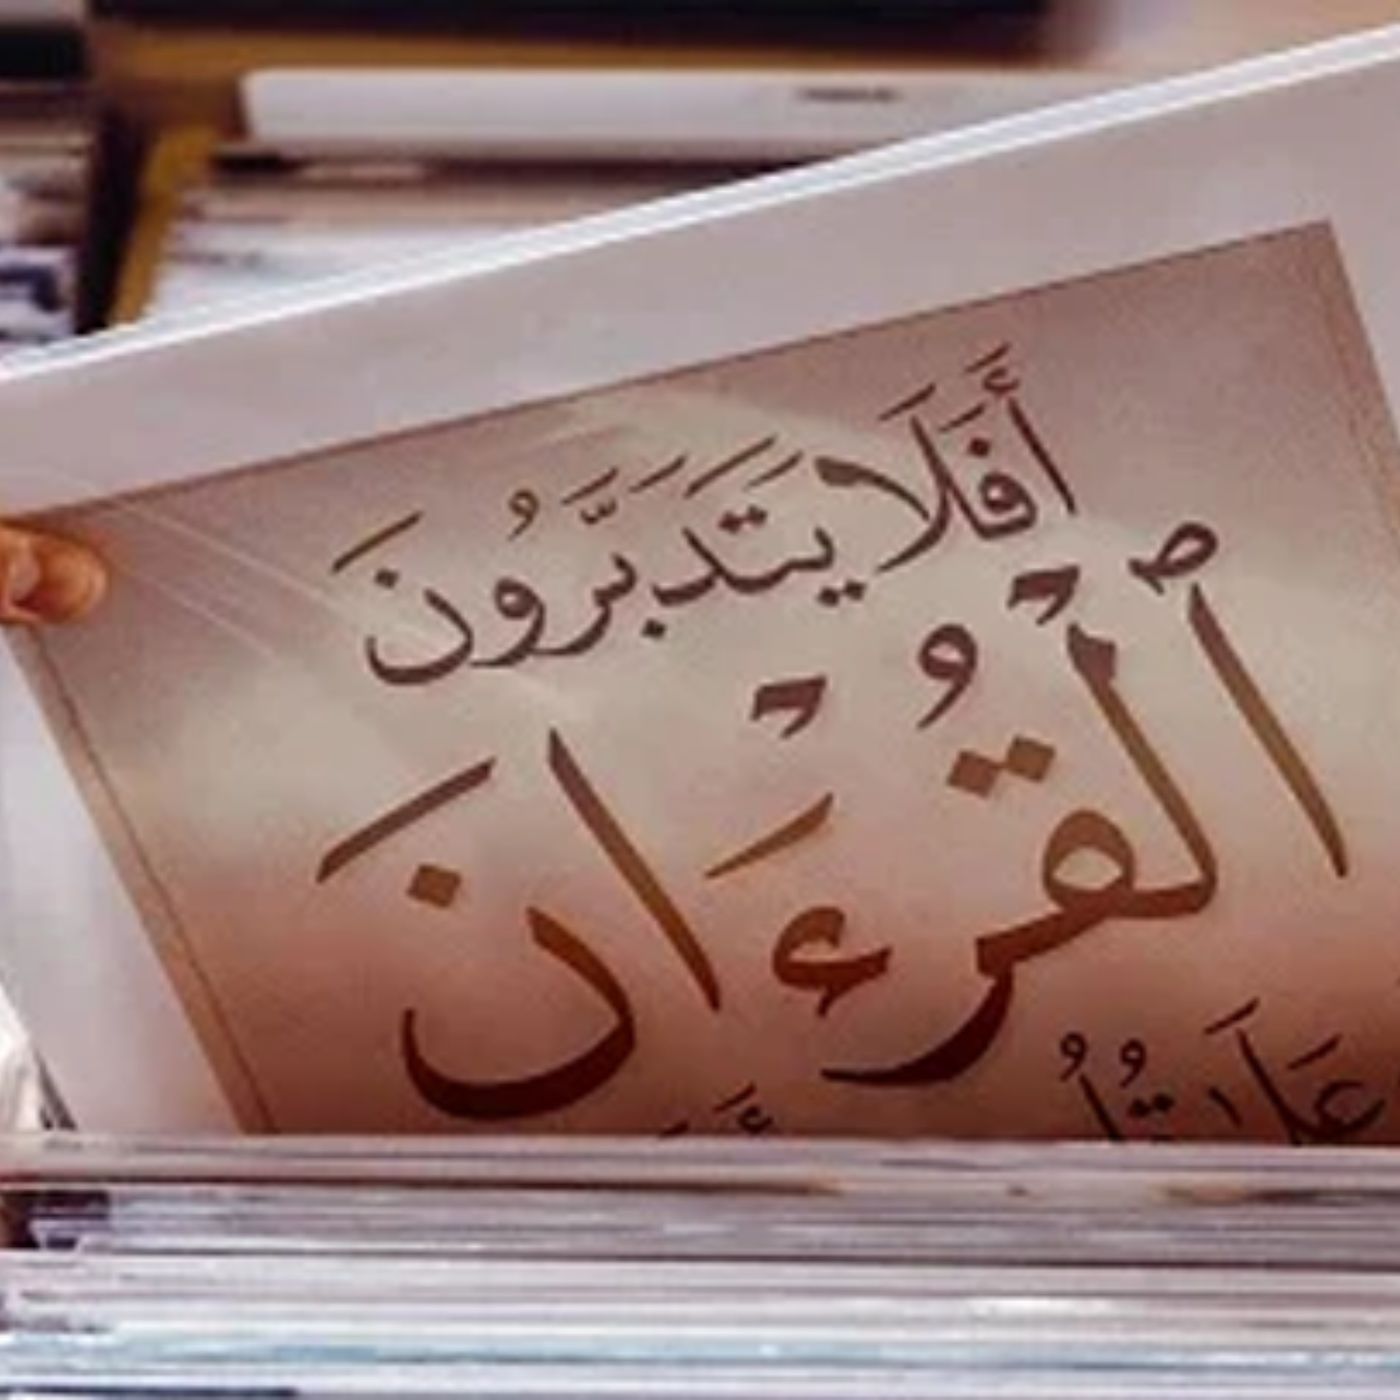 أَفَلَا يَتَدَبَّرُونَ
ٱلْقُرْءَانَ